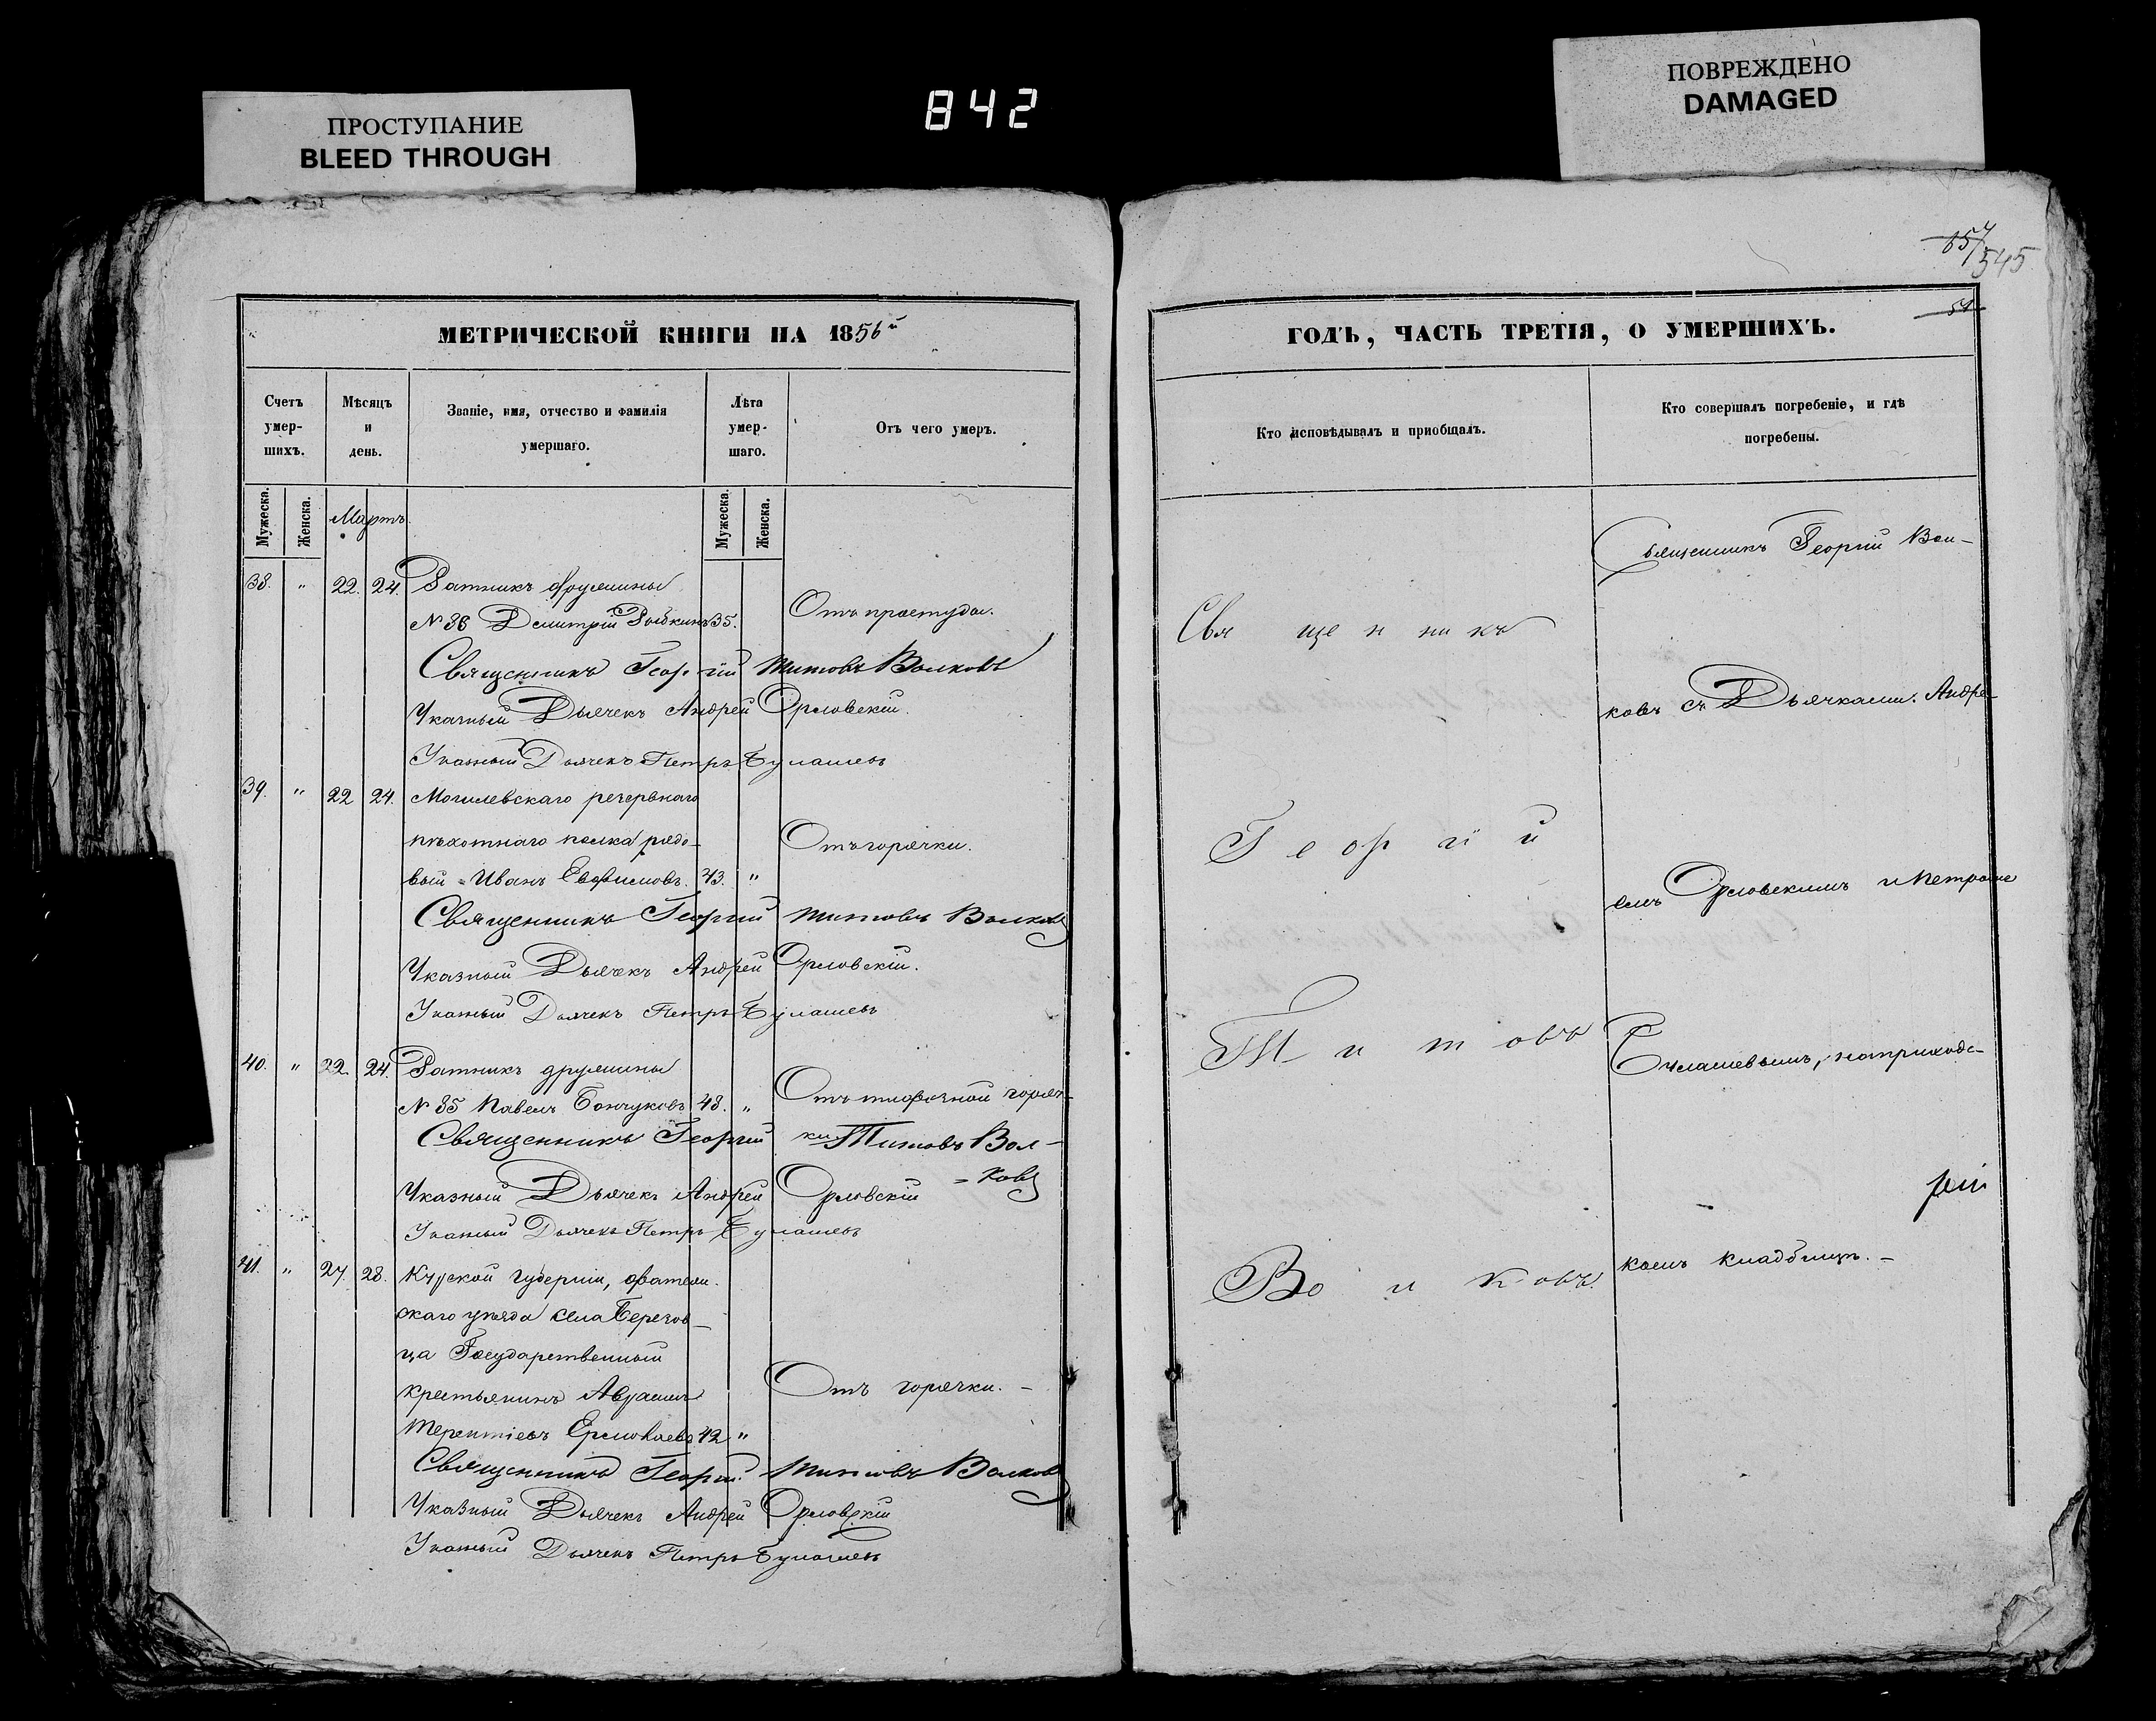 ПРОСТУПАНИЕ
BLEED THROUGH
842
ПОВРЕЖДЕНО
DAMAGED
545
МЕТРИЧЕСКОЙ КНИГИ НА 1856й
Счетъ умер-шихъ.
Мѣсяцъ и день.
Званіе, имя, отчество и фамилія умершаго.
Лѣта умер-шаго.
Отъ чего умеръ.
Мужеска.
Женска.
Мартъ
Мужеска.
Женска.
38. " 22. 24. Ратникъ дружины
N 86 Дмитрій Рыбкинъ 35. Отъ простуды.
Священникъ Георгій Титовъ Волковъ
Указный Дьячекъ Андрей Орловскій.
Указный Дьячекъ Петръ Булашевъ
39. " 22 24. Могилевскаго резервнаго
пѣхотнаго полка рядо- Отъ горячки.
вый Иванъ Евфимовъ. 43. "
Священникъ Георгій Титовъ Волковъ
Указный Дьячекъ Андрей Орловскій.
Указный Дьячекъ Петръ Булашевъ
40. " 22. 24. Ратникъ дружины
N 85 Павелъ Бончуковъ 48. " Отъ тифозной горяч-
Священникъ Георгій ки Титовъ Вол-
=ковъ
Указный Дьячекъ Андрей Орловскій
Указный Дьячекъ Петръ Булашевъ
41. " 27. 28. Курской губерніи, Фатеж-
скаго уѣзда села Березов-
ца Государственный
крестьянинъ Авраамъ Отъ горячки. -
Терентіевъ 42 "
Священникъ Георгій Титовъ Волковъ
Указный Дьячекъ Андрей Орловскій
Указный Дьячекъ Петръ Булашевъ
ГОДЪ, ЧАСТЬ ТРЕТІЯ, О УМЕРШИХЪ.
Кто исповѣдывалъ и приобщалъ.
Кто совершалъ погребеніе, и гдѣ погребены.
Священникъ
Георгій
Титовъ
Волковъ.
Священникъ Георгій Вол-
ковъ съ Дьячками. Андре-
емъ Орловскимъ и Петромъ
Булашевымъ, на приходс-
рій
комъ кладбищѣ. -